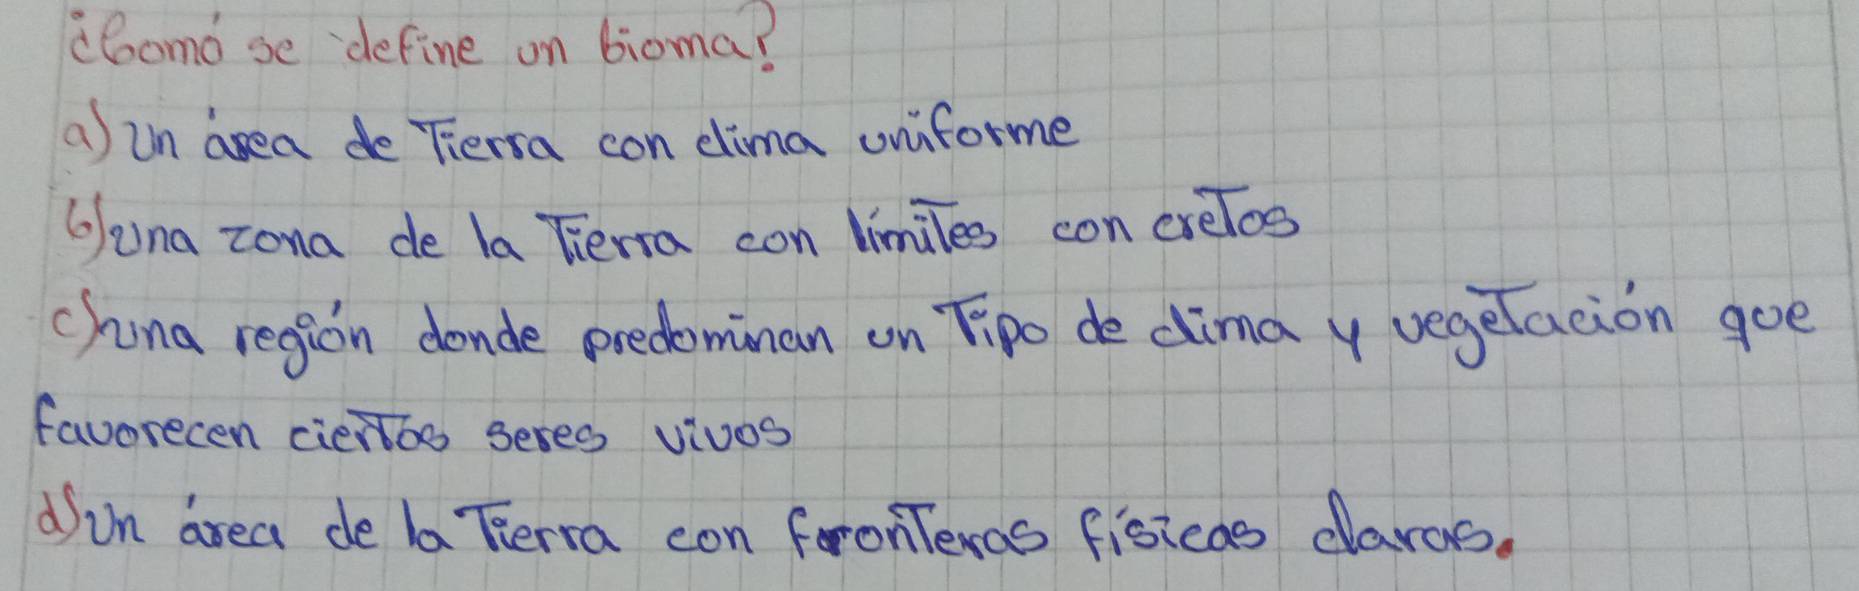 ¿Comó se define un bioma?
a) Un área de Tierra con clima uniforme
b) una zona de la Tierra con límites con cretos
c) una región donde predominan un Tipo de clima y vegetación que
favorecen ciertos seres vivos
d) Un área de la Tierra con fronteras físicas claras.